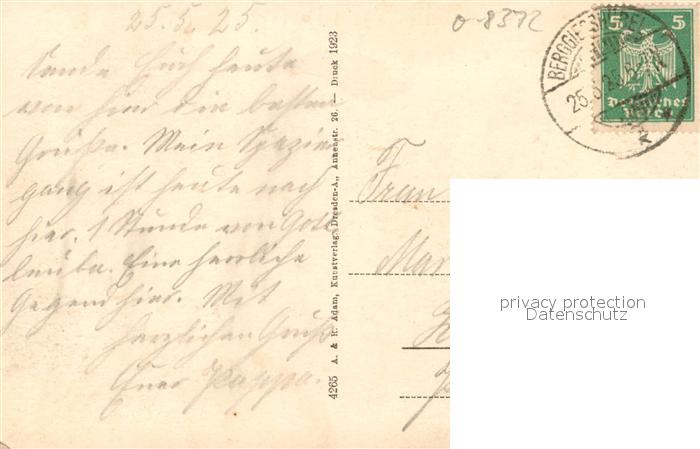 25.5.25.
o-8372
Sende Euch heute
von hier die besten
Grüße. Mein Spazier
gang ist heute nach
hier. 1 Stunde von Gott
leuba. Eine herrliche
Gegend hier. Mit
herzlichen Gruß
Euer Pappa.
4265 A. & R. Adam, Kunstverlag, Dresden-A., Annenstr. 26. — Druck 1923
BERGGIESSHÜBEL
25.5.25
5 5
Deutsches
Reich
Frau
Mar
privacy protection
Datenschutz